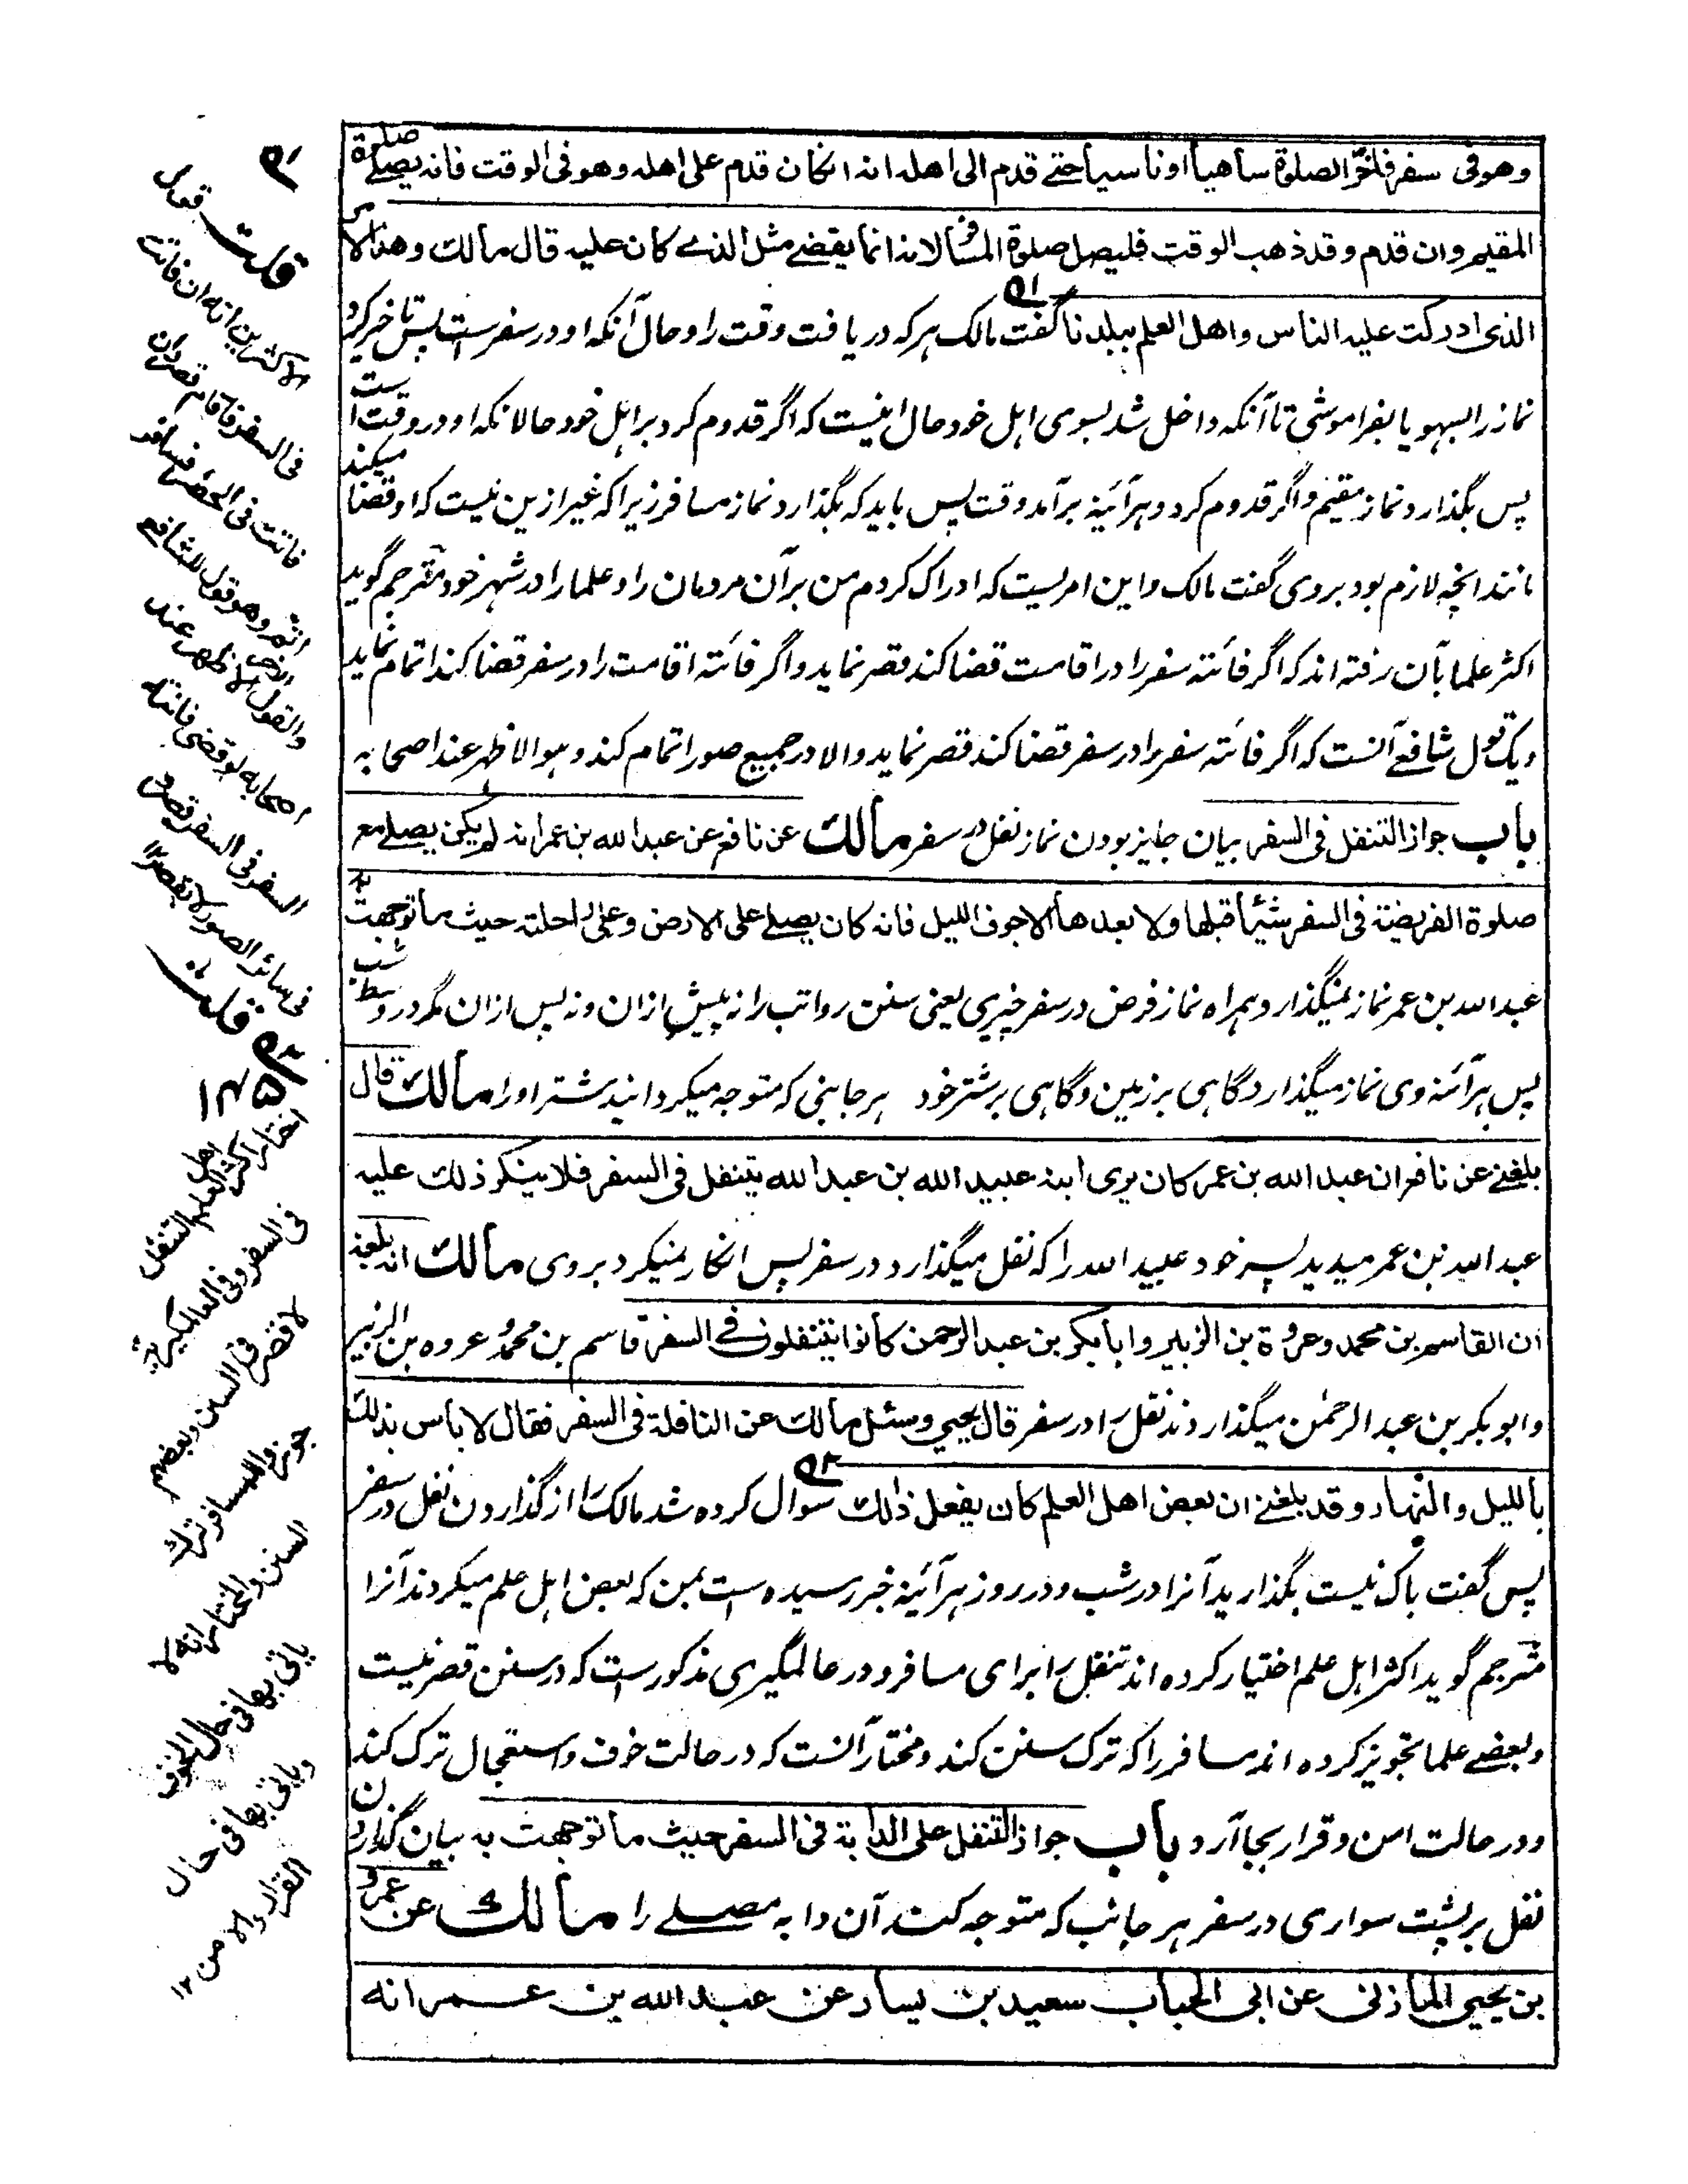 وهو فى سفر فاخّر الصلوة ساهيا او ناسيا حتے قدم الى اهله انه انكان قدم على اهله وهو فى الوقت فانه يصلے صلوة
المقيم وان قدم وقد ذهب الوقت فليصل صلوة المسافر لانه انما يقضے مثل الذے كان عليه قال مالك وهذا الامر
الذى ادركت عليه الناس واهل العلم ببلدنا گفت مالک ہر کہ دریافت وقت را و حال آنکہ او در سفرست پس تاخیر کرد
نماز را بسہو یا بفراموشی تا آنکہ داخل شد بسوی اہل خود حال اینست کہ اگر قدوم کرد بر اہل خود حالانکہ او در وقت است
پس بگذارد نماز مقیم و اگر قدوم کرد و ہرآئینہ برآمد وقت پس باید کہ بگذارد نماز مسافر زیرا کہ غیر ازین نیست کہ او قضا میکند
مانند انچہ لازم بود بروی گفت مالک و این امریست کہ ادراک کردم من برآن مردمان را و علما را در شہر خود مترجم گوید
اکثر علما بآن رفتہ اند کہ اگر فائتہ سفر را در اقامت قضا کند قصر نماید و اگر فائتہ اقامت را در سفر قضا کند اتمام نماید
و یک قول شافعے آنست کہ اگر فائتہ سفر را در سفر قضا کند قصر نماید والا در جمیع صور اتمام کند و ہو الاظہر عند اصحابہ
باب جواز التنفل فى السفر بیان جایز بودن نماز نفل در سفر مالك عن نافع عن عبد الله بن عمر انه لم يكن يصلے مع
صلوة الفريضة فى السفر شيئا قبلها ولا بعدها الا جوف الليل فانه كان يصلے على الارض وعلى راحلته حيث ما توجهت به
عبد اللہ بن عمر نماز نمیگذارد ہمراہ نماز فرض در سفر چیزی یعنی سنن رواتب را نہ پیش ازان و نہ پس ازان مگر در وسط شب
پس ہرآئنہ وی نماز میگذارد گاہی بر زمین و گاہی بر شتر خود ہر جانبی کہ متوجہ میگردانید شتر او را مالك قال
بلغنے عن نافع ان عبد الله بن عمر كان يرى ابنه عبيد الله بن عبد الله يتنفل فى السفر فلا ينكر ذلك عليه
عبد اللہ بن عمر میدید پسر خود عبید اللہ را کہ نفل میگذارد در سفر پس انکار نمیکرد بروی مالك انه بلغه
ان القاسم بن محمد وعروة بن الزبير وابا بكر بن عبد الرحمن كانوا يتنفلون فے السفر قاسم بن محمد و عروه بن الزبیر
و ابو بکر بن عبد الرحمٰن میگذاردند نفل را در سفر قال يحيى وسئل مالك عن النافلة فى السفر فقال لا باس بذلك
بالليل والنهار وقد بلغنے ان بعض اهل العلم كان يفعل ذلك سوال کردہ شد مالک را از گذاردن نفل در سفر
پس گفت باک نیست بگذارید آنرا در شب و در روز ہرآئینہ خبر رسیدہ است بمن کہ بعض اہل علم میکردند آنرا
مترجم گوید اکثر اہل علم اختیار کردہ اند تنفل را برای مسافر و در عالمگیری مذکورست کہ در سنن قصر نیست
و بعضے علما تجویز کردہ اند مسافر را کہ ترک سنن کند و مختار آنست کہ در حالت خوف و استعجال ترک کند
و در حالت امن و قرار بجا آرد باب جواز التنفل على الدابة فى السفر حيث ما توجهت به بیان گذاردن
نفل بر پشت سواری در سفر ہر جانب کہ متوجہ کند آن دابہ مصلے را مالك عن عمرو
بن يحيى المازنى عن ابى الحباب سعيد بن يسار عن عبد الله بن عمر انه
قلت قول
الاكثرين انه ان فاتته
فى السفر فاقام قصر وان
فاتت فى الحضر فسافر
اتم وهو قول للشافعے
والقول الاظهر عند
اصحابه لو قضى فائتة
السفر فى السفر قصر و
فى سائر الصور لا يقصر ١٢
قلت
اختار اكثر اهل العلم التنفل
فى السفر وفى العالمكيرية
لا قصر فى السنن وبعضهم
جوزوا للمسافر ترك
السنن والمختار انه لا
ياتى بها فى حال الخوف
وياتى بها فى حال
القرار والامن ١٢